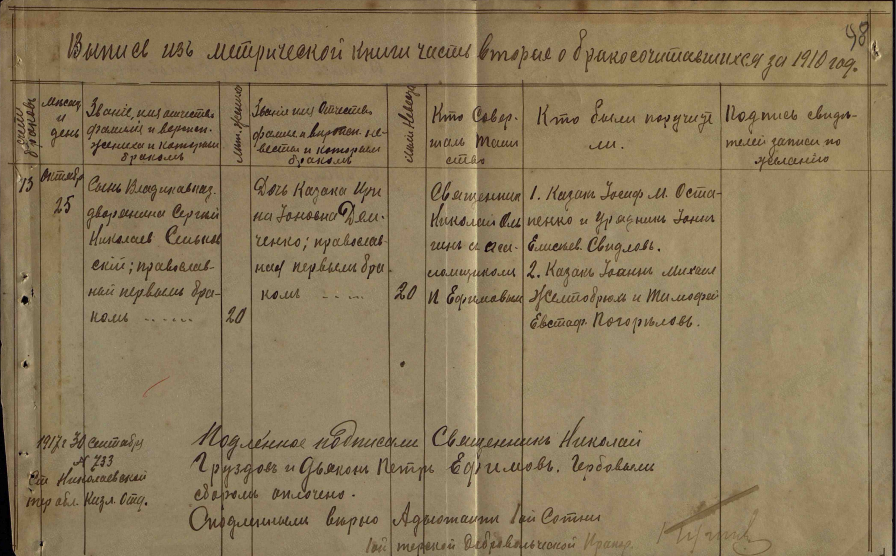 98
Выпись изъ метрической книги часть вторая о бракосочитавшихся за 1910 год.
счетъ браковъ
Месяц
и
день
Званіе, имя отчество
фамилія и вероисп.
жениха и которым
бракомъ
лета жениха
Званіе имя отчество
фамил. и вероисп. не-
весты и которым
бракомъ
лета невесты
Кто Совер-
шалъ Таин
ство
Кто были поручите
ли.
Подпись свидѣ-
телей записи по
желанию
13
Октября
25
Сынъ Владикавказ.
дворянина Сергѣй
Николаев
скій; православ-
ный первымъ бра-
комъ
20
Дочь Казака Ири
на Іоновна Дем-
ченко; православ-
ная первымъ бра-
комъ
20
Священник
Николай
съ
ломщикомъ
П Ефимовым
1. Казакъ Іосиф М. Оста-
пенко и Урядникъ Іоник
Елисеев. Свидловъ.
2. Казакъ Іоаннъ Михаил
Желтобрюхъ и Тимофей
Евстаф. Погорѣловъ.
1917 г 30 сентября
№ 733
Ст Николаевской
тер обл. Кизл. Отд.
Подлѣнное подписали Священникъ Николай
Груздовъ и Дьякон Петръ Ефимовъ. Гербовымъ
сборомъ оплочено.
Сподлинным вѣрно Адъютантъ 1ой Сотни
1ой терской Добровольческой